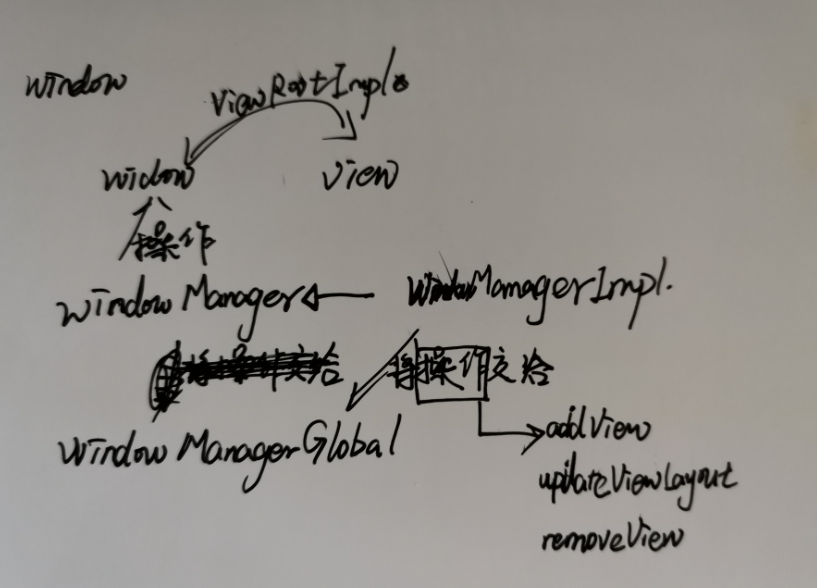 Window
ViewRootImpl
Widow
View
操作
Window Manager
WindowManagerImpl.
将操作交给
将操作交给
Window Manager Global
addView
updateViewLayout
removeView